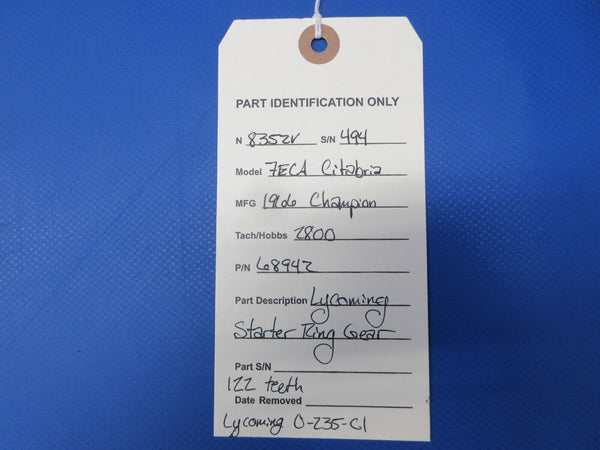 PART IDENTIFICATION ONLY
N 8352V S/N 494
Model 7ECA Citabria
MFG Champion
Tach/Hobbs 2800
P/N 68942
Part Description Lycoming
Starter Ring Gear
Part S/N
122 teeth
Date Removed
Lycoming O-235-C1